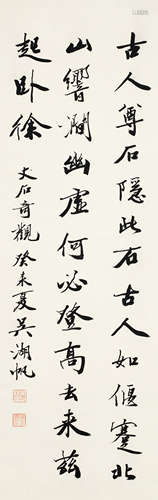 古人尊石隱此石古人如偃蹇北
山響澗幽虛何必登高去来茲
起卧徐
文石奇觀癸未夏吳湖帆